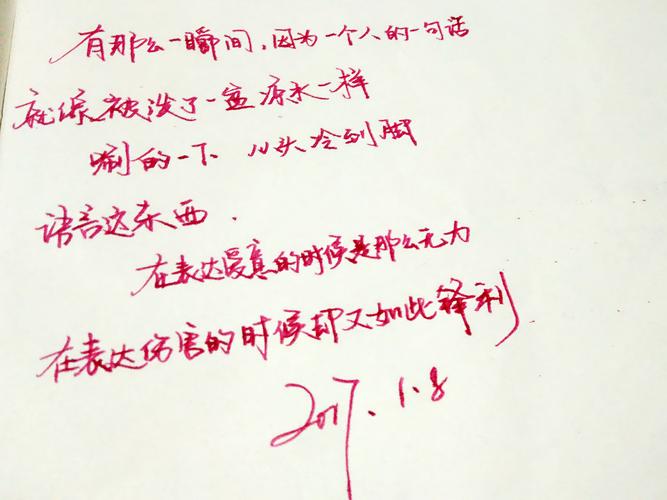 有那么一瞬间，因为一个人的一句话
就像被泼了一盆凉水一样
唰的一下 从头冷到脚
语言这东西，
在表达爱意的时候是那么无力
在表达伤害的时候却又如此锋利
2017.1.8